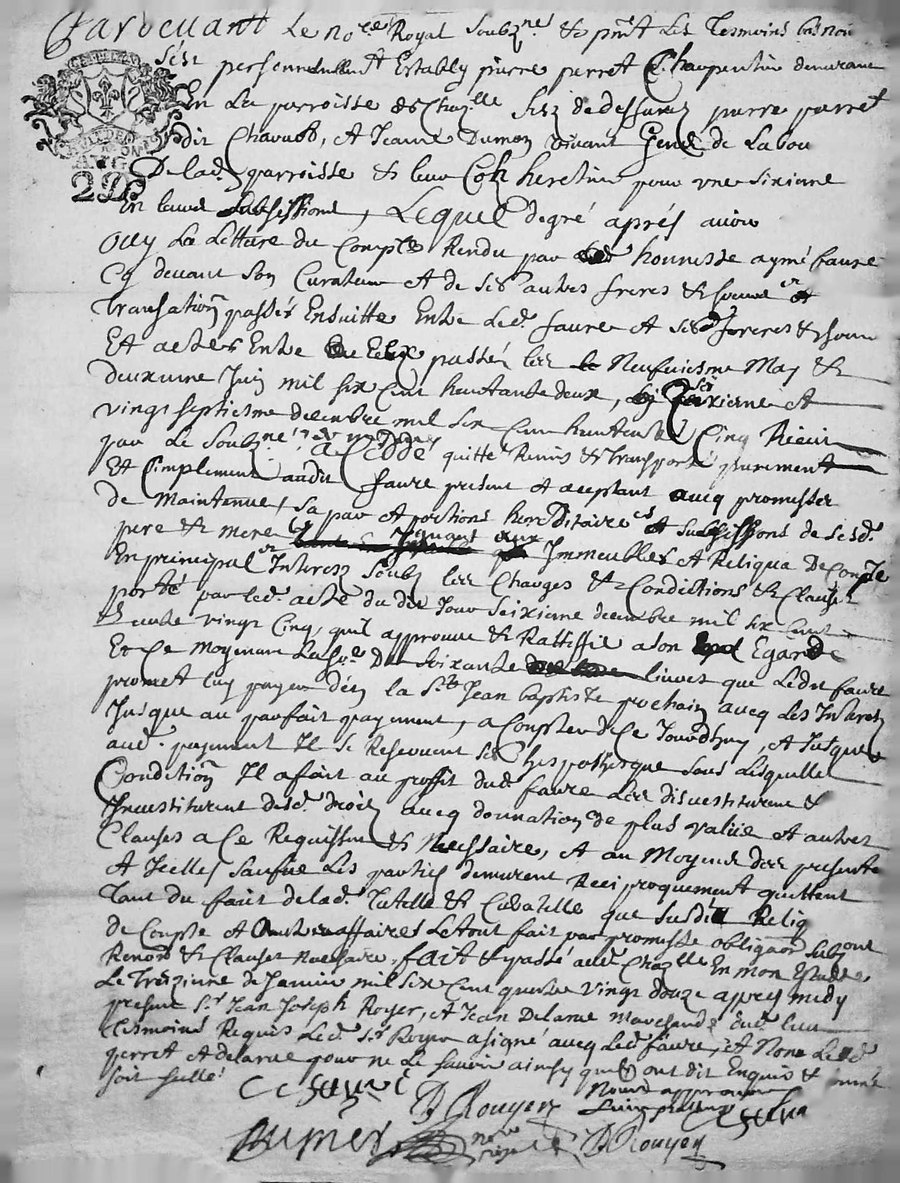 Pardevant Le no.re Royal Soubz.né & p.nt Les Tesmoins bas nom
s'est personnellem.t Estably pierre perret Charpentier demeurant
En La parroisse de Chaz.lle filz de deffunctz pierre perret
dit Chavant, et Jeanne Dumon vivant Gens de Labou
De lad. parroisse & leur Coh heretier pour une sixieme
En leurs subsessions, Lequel degré aprés avoir
Ouy La Letture du Compte Rendu par honneste aymé faure
Cy devant Son Curateur et de ses autres freres & soeurs et
transation passés Ensuitte Entre led. faure et sesd. freres & soeurs
Et actes Entre Eux passés les Neufviesme May &
deuxieme Juin mil six cent huittante deux, seixieme et
vingt septiesme decembre mil six cent huittante Cinq Receu
par Le Soubz.né, a Ceddé quitté Remis & transporté purement
Et Cimplement audit faure present et aceptant avecq promesse
de Maintenue, sa par et portions hereditaires et subsessions de sesd.
pere & mere Immeubles et Reliqua De Compte
En principal Interetz soubz les Charges & Condictions & Clauses
porté par led. acte du dix Jour seixieme decembre mil six cent
quatre vingt Cinq, quil approuve & Rattiffie a son Egard
Et Ce Moyenant La so.e De soixante livres que Ledit faure
promet luy payer dès la S.t Jean baptiste prochain avecq Les Interetz
Jusque au parfait payement, a Compter de Ce Jourdhuy, et Jusque
aud. payement Il se Reservent ses hespotheque sous lesquelle
Condition Il a fait au proffit dud. faure Les disvestiture &
Investiture desd. droitz avecq donnation de plus value et autres
Clauses a Ce Requisse & Nessaire, et au Moyend des presente
et Icelles sauflue Les parties demeurent Reciproquement quittent
tant du fait de lad. Tutelle & Curatelle que susdit Reliq
de Compte et autre affaires Le tout fait par promesse obligaon Submi
Renon & Clauses Nessaire, fait & passé aud. Chaz.lle En mon Estude,
Le Treizieme de Janvier mil six cent quatre vingt douze apres midy
present S.r Jean Joseph Royer, et Jean Delarue Marchands dud. lieu
tesmoins Requis Led. S.r Royer a signé avecq led. faure, et Non Le d.
perret et delarue pour ne Le savoir ainsy quilz ont dit Enquis &
soit scellé
Nous approuvon
faure
D Rouyer
no.re royal
D Rouyer